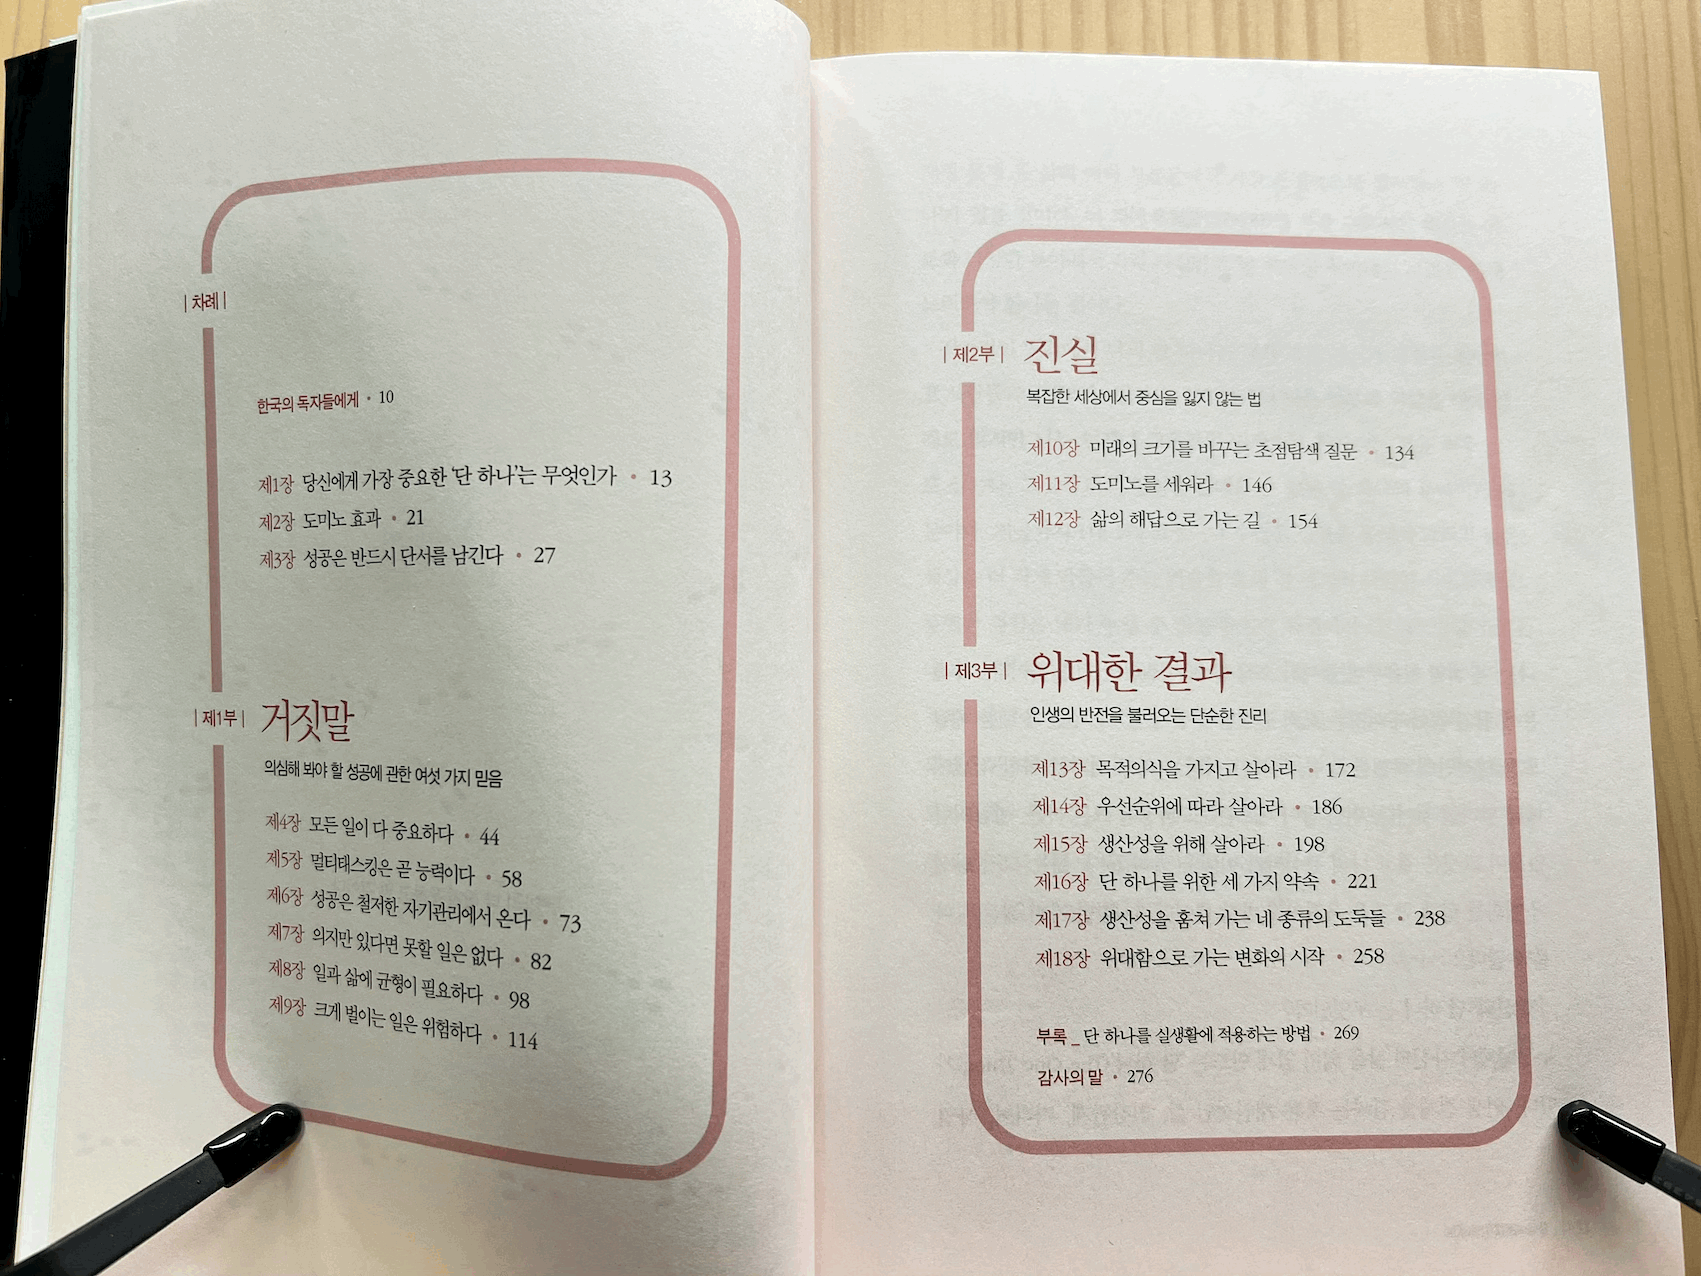 | 차례 |
한국의 독자들에게 • 10
제1장 당신에게 가장 중요한 '단 하나'는 무엇인가 • 13
제2장 도미노 효과 • 21
제3장 성공은 반드시 단서를 남긴다 • 27
| 제1부 | 거짓말
의심해 봐야 할 성공에 관한 여섯 가지 믿음
제4장 모든 일이 다 중요하다 • 44
제5장 멀티태스킹은 곧 능력이다 • 58
제6장 성공은 철저한 자기관리에서 온다 • 73
제7장 의지만 있다면 못할 일은 없다 • 82
제8장 일과 삶에 균형이 필요하다 • 98
제9장 크게 벌이는 일은 위험하다 • 114
| 제2부 | 진실
복잡한 세상에서 중심을 잃지 않는 법
제10장 미래의 크기를 바꾸는 초점탐색 질문 • 134
제11장 도미노를 세워라 • 146
제12장 삶의 해답으로 가는 길 • 154
| 제3부 | 위대한 결과
인생의 반전을 불러오는 단순한 진리
제13장 목적의식을 가지고 살아라 • 172
제14장 우선순위에 따라 살아라 • 186
제15장 생산성을 위해 살아라 • 198
제16장 단 하나를 위한 세 가지 약속 • 221
제17장 생산성을 훔쳐 가는 네 종류의 도둑들 • 238
제18장 위대함으로 가는 변화의 시작 • 258
부록 _ 단 하나를 실생활에 적용하는 방법 • 269
감사의 말 • 276